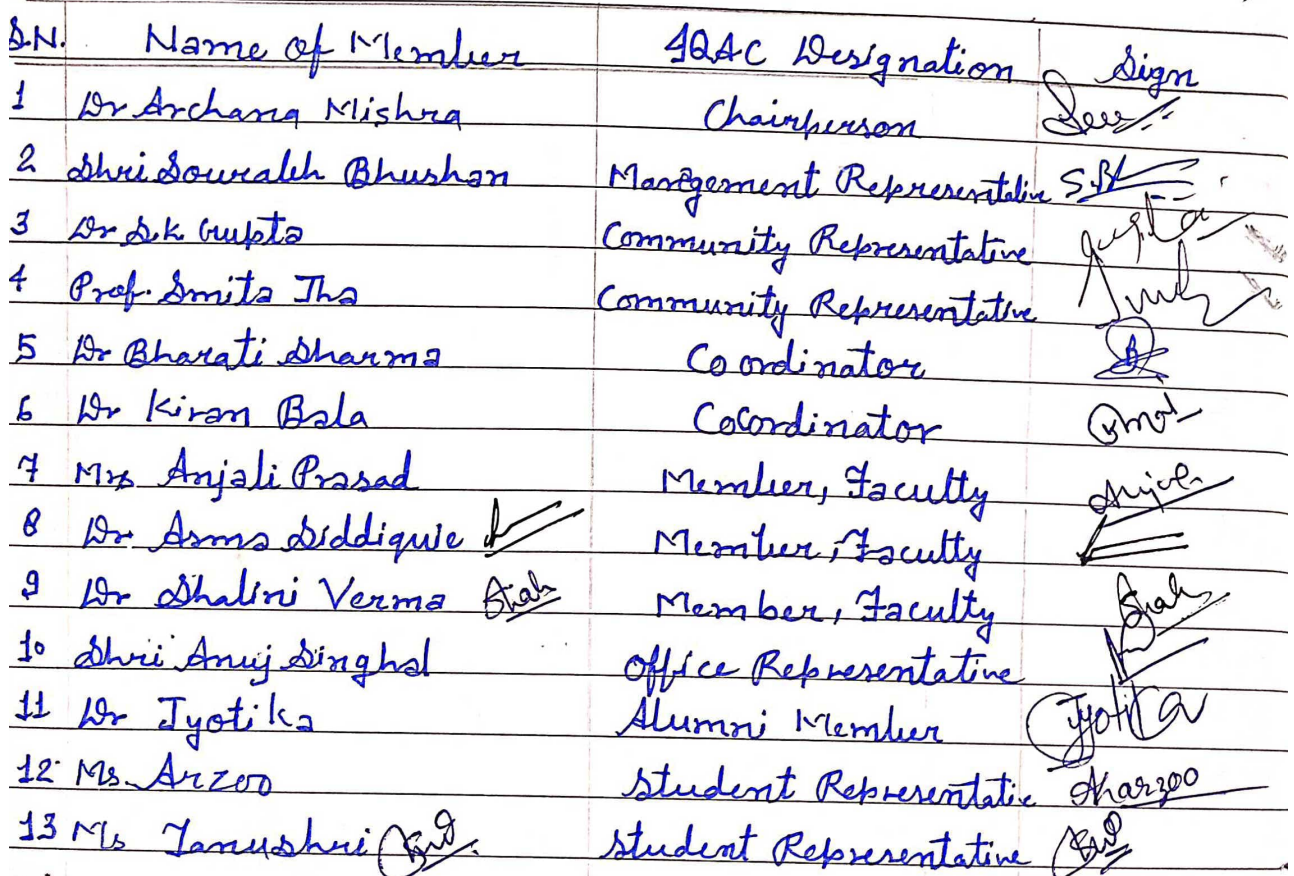 S.N. Name of Member IQAC Designation Sign
1 Dr Archana Mishra Chairperson
2 Shri Sourabh Bhushan Management Representative S.B
3 Dr S.K Gupta Community Representative gupta
4 Prof. Smita Jha Community Representative
5 Dr Bharati Sharma Coordinator
6 Dr Kiran Bala CoCordinator
7 Mrs Anjali Prasad Member, Faculty Anjali
8 Dr Asma Siddiquie Member, Faculty
9 Dr Shalini Verma Member, Faculty
10 Shri Anuj Singhal Office Representative
11 Dr Jyotika Alumni Member Jyotika
12 Ms. Arzoo Student Representative Aharzoo
13 Ms Tanushri Student Representative